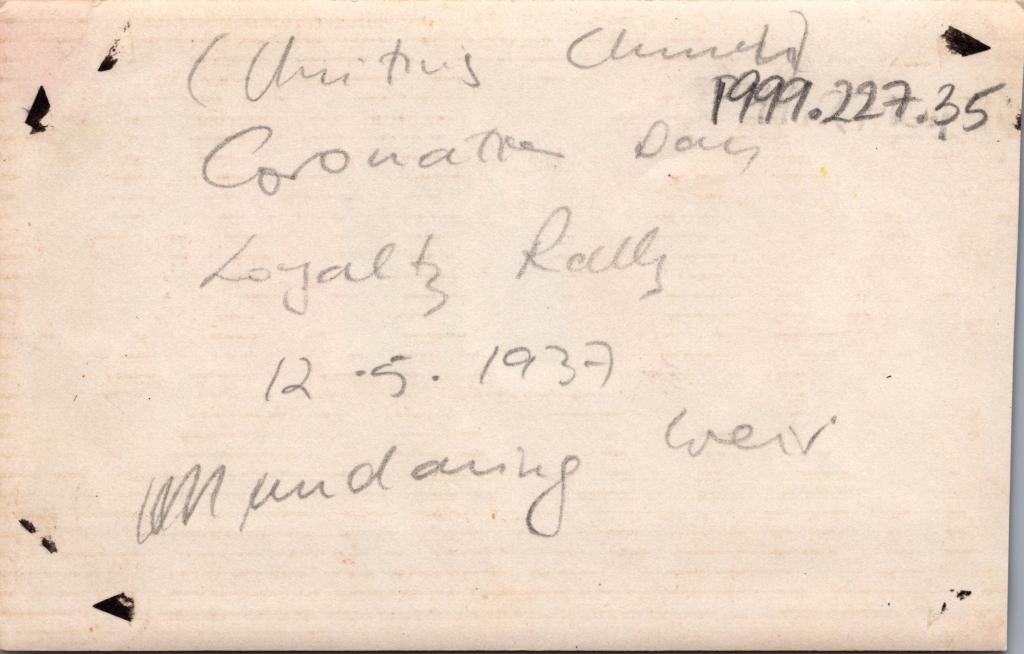 (Christies Church)
1999.227.35
Coronation Day
Loyalty Rally
12.5.1937
Mundaring Weir